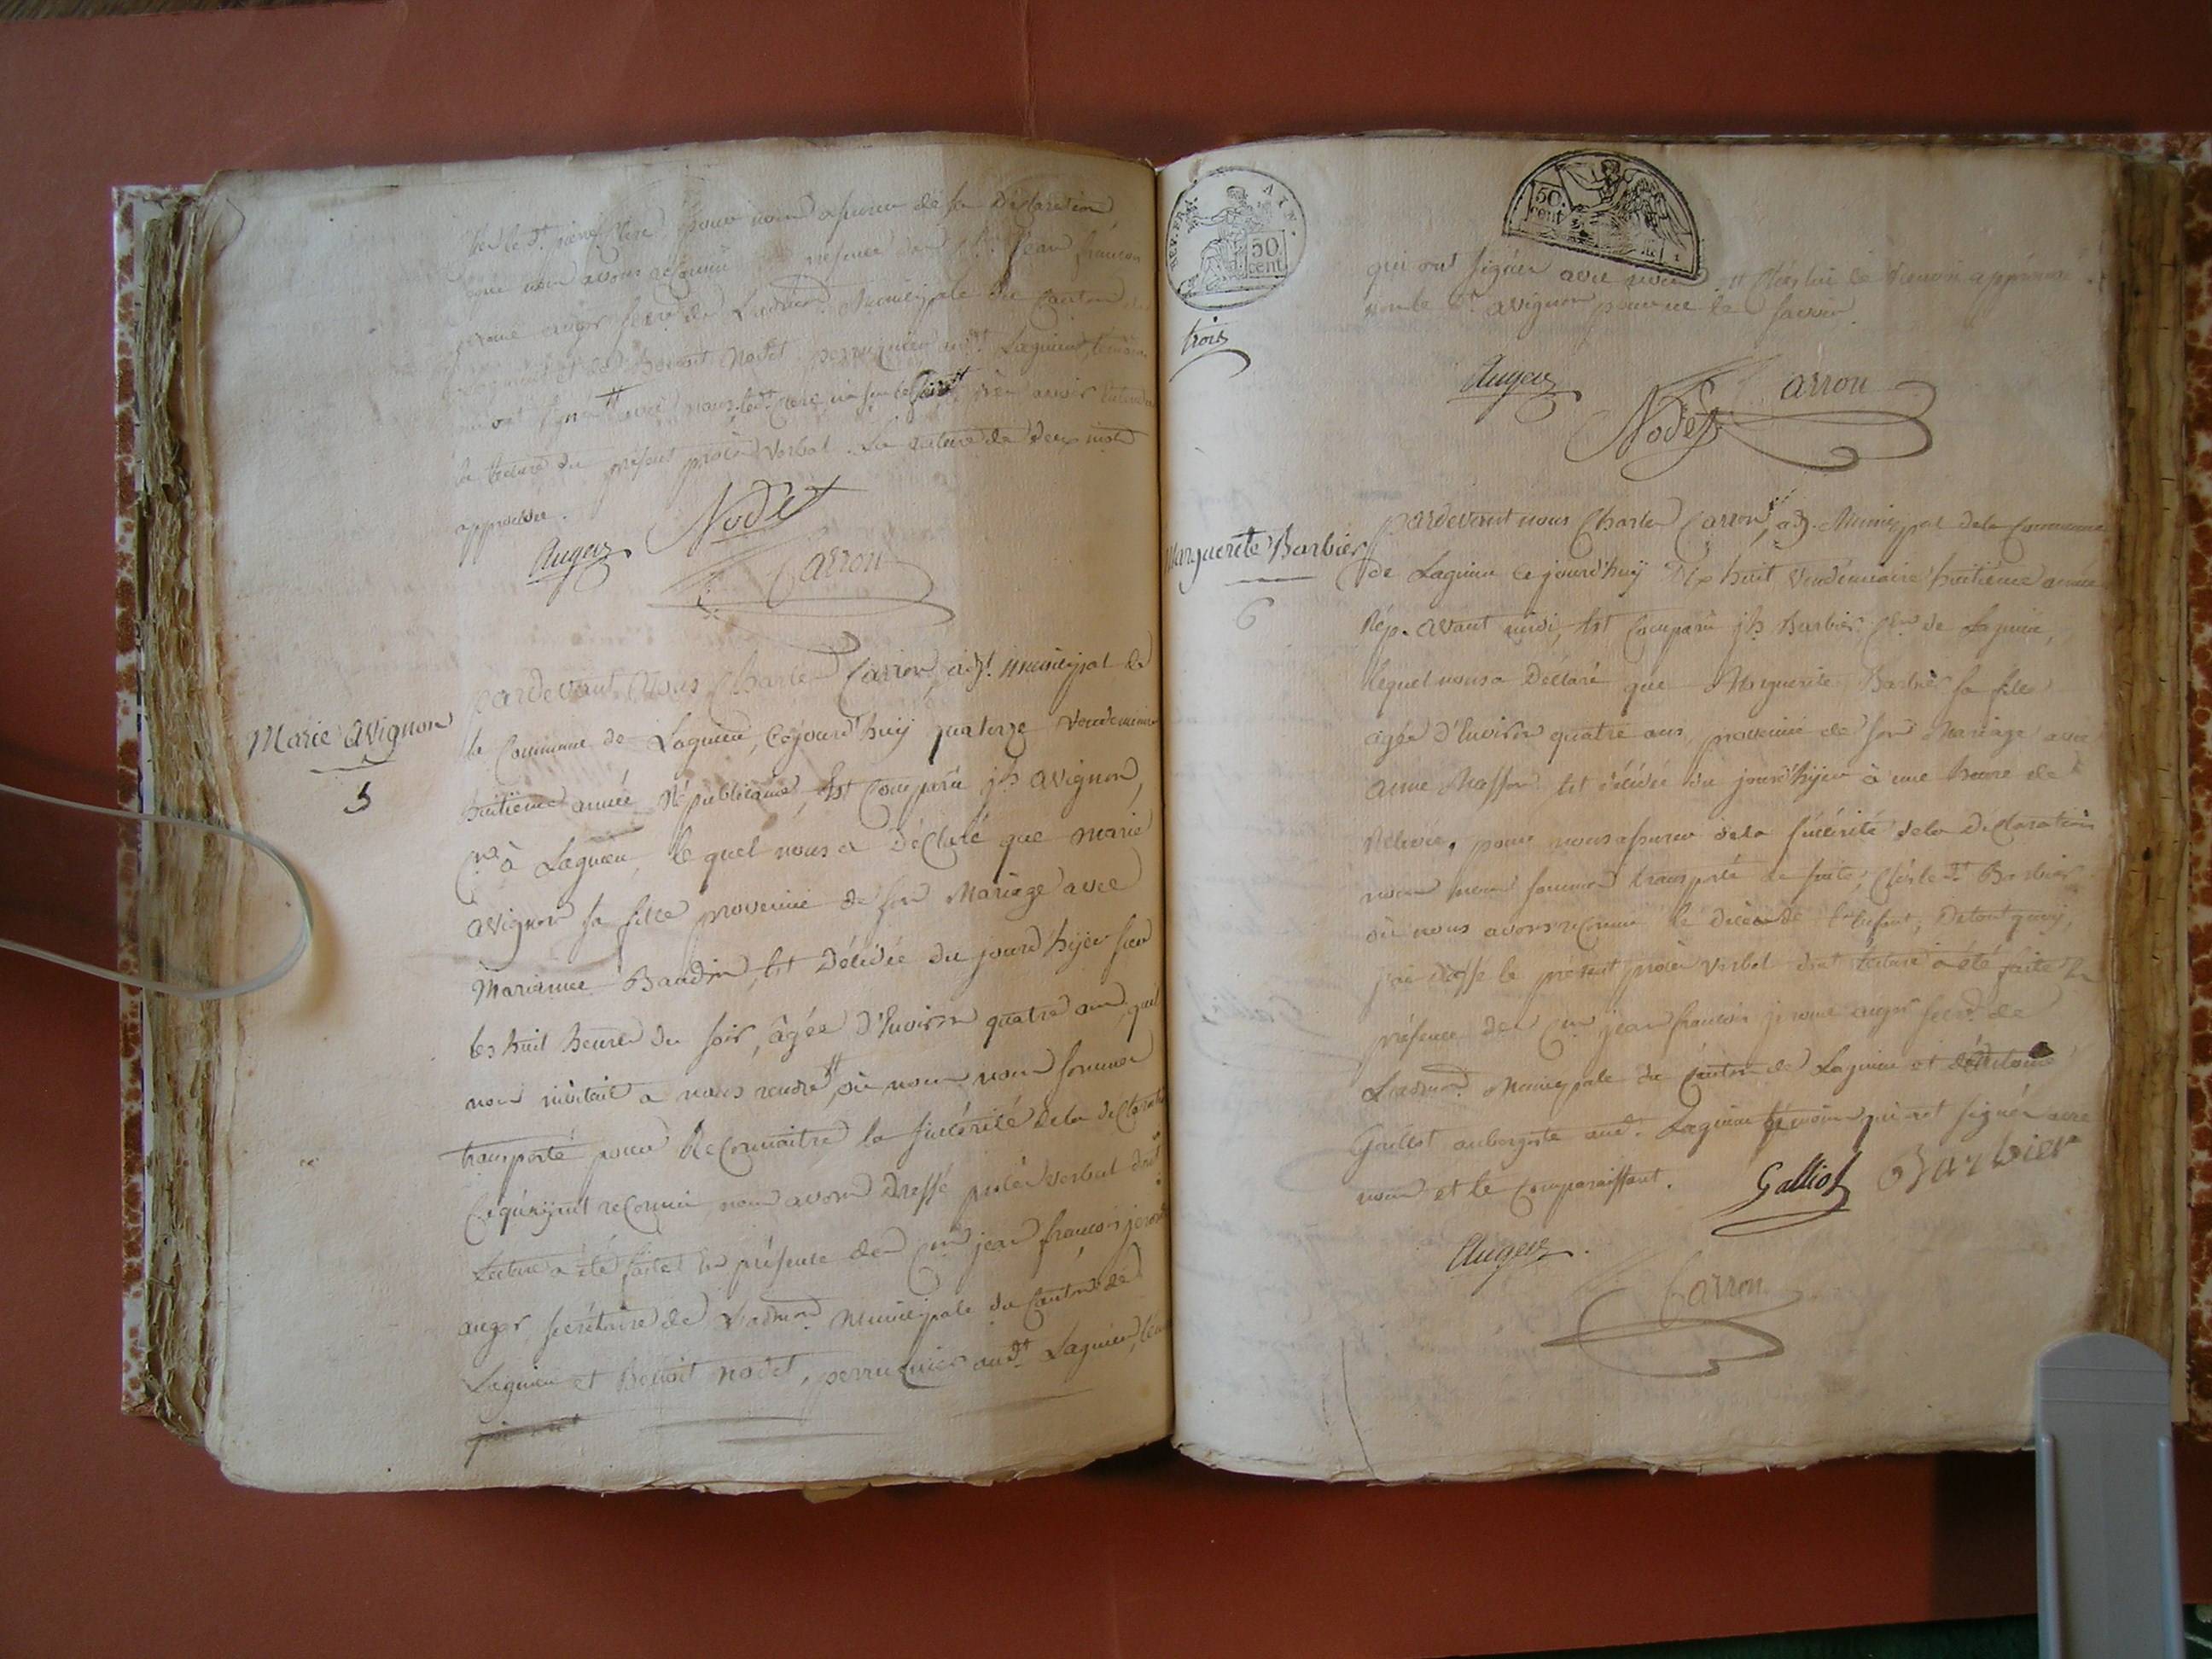 pour nous assurer de sa Déclaration
que nous avons reconnu en présence des Jean françois
jerome auger secre de L'admon Municipale du Canton de
Lagnieu et de Benoit Nodet perruquier audt Lagnieu, témoins
qui ont signé avec nous après avoir Entendu
la Lecture du présent procès verbal. La rature de deux mots
approuvée.
Auger Nodet
Carron
Marie Avignon
5
pardevant Nous Charles Carron, adjt municipal de
la Commune de Lagnieu, Cejourd'huy quatorze Vendemiaire
huitième année Républicaine, Est Comparu jh avignon,
Cer à Lagnieu, lequel nous a Déclaré que marie
avignon sa fille provenüe de son Mariage avec
Marianne Baudin, Est Décédée du jourd'hyer sur
les huit heures du soir, âgée d'Environ quatre ans, qu'il
nous invitait a nous rendre, où nous nous sommes
transporté pour Reconnaitre la sincérité dela déclaration
Cequ'ayant reconnu nous avons Dressé procès verbal dont
Lecture a été faite En présence des Cens jean françois jerome
auger secrétaire de L'admon Municipale du Canton de
Lagnieu et Benoit nodet, perruquier audt Lagnieu,
qui ont
50 cent
REP. FRA.
50. cent
trois
qui ont signés avec nous
non le dt avignon pour ne le savoir.
Auger Nodet Carron
Marguerite Barbier
6
pardevant nous Charles Carron, adj. Municipal dela Commune
de Lagnieu Cejourd'huy Dix huit Vendémiaire huitième année
Rép. avant midi, Est Comparu jh Barbier Cer de Lagnieu,
lequel nous a Déclaré que Marguerite Barbier sa fille
agée d'Environ quatre ans, provenüe de son Mariage avec
anne Masson Est décédée du jourd'hyer à une heure de
Relevée, pour nous assurer dela sincérité dela Déclaration
nous nous sommes transporté de suite, Chés le dt Barbier
où nous avons reconnu le décès de l'enfant; De tout quoy,
j'ai dressé le présent procès verbal dont lecture a été faite En
présence des Cens jean françois jerome auger secre de
L'admon Municipale du Canton de Lagnieu et
Galliot aubergiste audt Lagnieu témoins qui ont signés avec
nous et le Comparaissant.
Galliot Barbier
Auger.
Carron